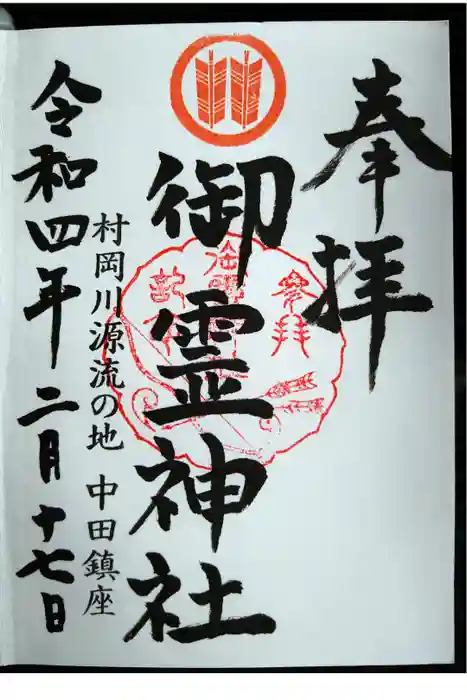 奉拝
御霊神社
村岡川源流の地 中田鎮座
令和四年二月十七日
参拝